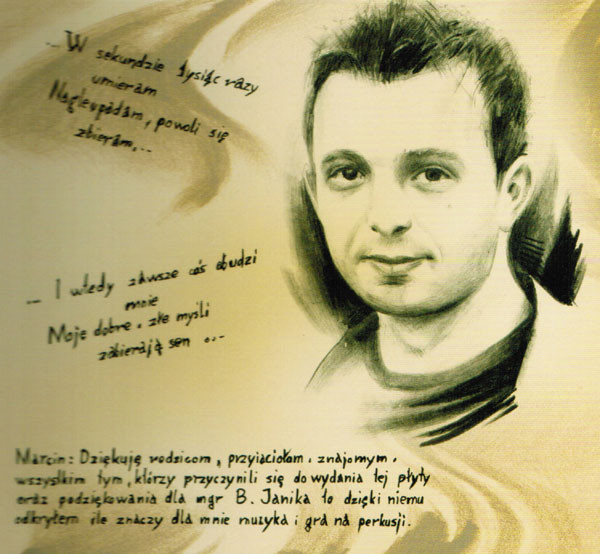 ... W sekundzie tysiąc razy
umieram
Nagle upadam, powoli się
zbieram...
... I wtedy zawsze coś obudzi
mnie
Moje dobre i złe myśli
zabierają sen ...
Marcin: Dziękuję rodzicom, przyjaciołom, znajomym,
wszystkim tym, którzy przyczynili się do wydania tej płyty
oraz podziękowania dla mgr B. Janika to dzięki niemu
odkryłem ile znaczy dla mnie muzyka i gra na perkusji.